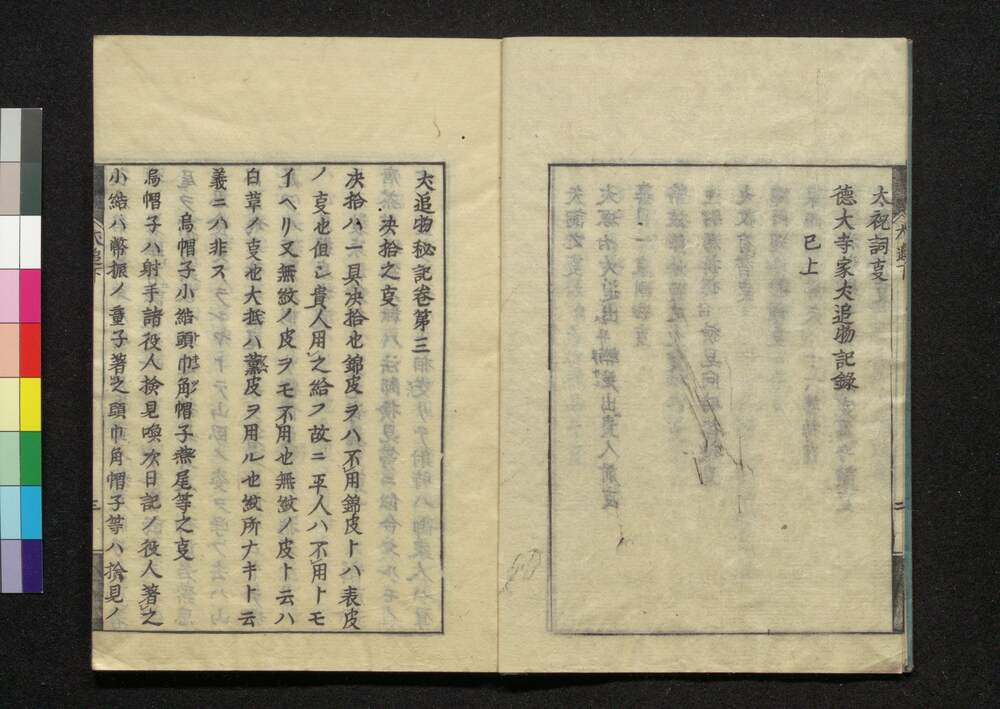 太祝詞𡱈
德大寺家犬追物記録
已上
犬追物秘記巻第三
决拾之𡱈
决拾ハ一具决拾也錦皮ヲハ不用錦皮トハ表皮
ノ𡱈也但シ貴人用之給フ故ニ平人ハ不用トモ
イヘリ又無紋ノ皮ヲモ不用也無紋ノ皮ト云ハ
白革ノ𡱈也大抵ハ薫皮ヲ用ル也紋所ナキト云
義ニハ非ス
烏帽子小結頭巾角帽子燕尾等之𡱈
烏帽子ハ射手諸役人検見喚次日記ノ役人著之
小結ハ幣振ノ童子著之頭巾角帽子等ハ検見ノ
犬追下
二
三